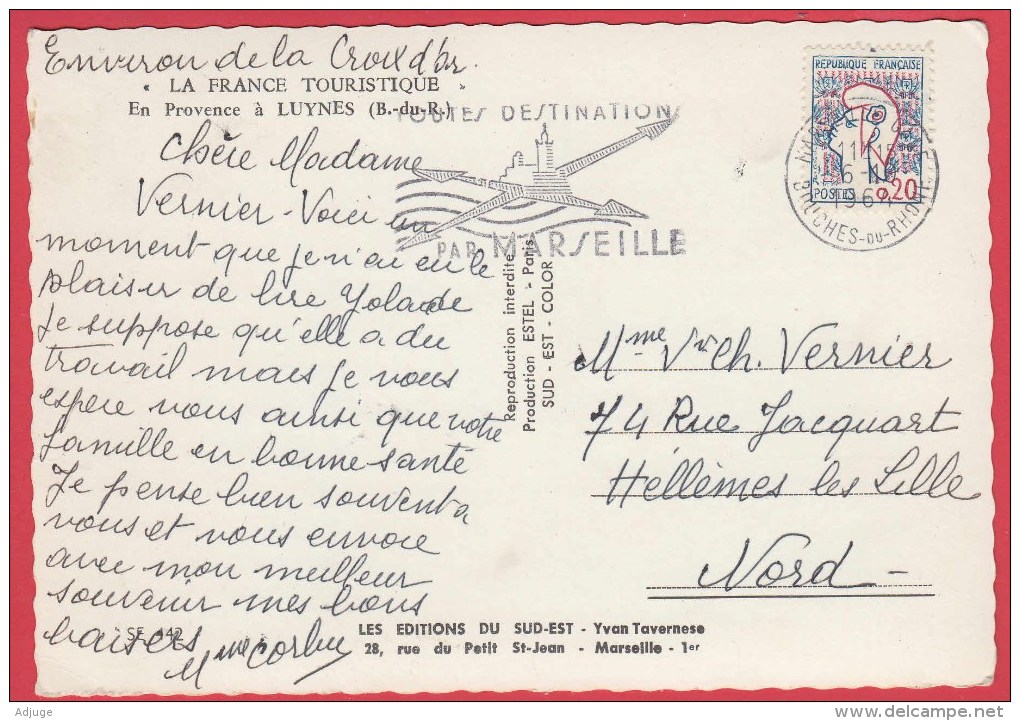 Environ de la Croix d'Or.
" LA FRANCE TOURISTIQUE "
En Provence à LUYNES (B.-du-R.)
TOUTES DESTINATIONS
PAR MARSEILLE
REPUBLIQUE FRANÇAISE
POSTES 0,20
11H15
6-10
BOUCHES-DU-RHONE
Chère Madame
Vernier - Voici un
moment que je n'ai eu le
plaisir de lire Yolande
Je suppose qu'elle a du
travail mais je vous
espère vous ainsi que votre
famille en bonne santé
Je pense bien souvent a
vous et vous envoie
avec mon meilleur
souvenir mes bons
baisers
Mme
Reproduction interdite
Production ESTEL - Paris
SUD - EST - COLOR
Mme Vve Ch. Vernier
74 Rue Jacquart
Héllèmes les Lille
Nord -
SE 442
LES EDITIONS DU SUD-EST - Yvan Tavernese
28, rue du Petit St-Jean - Marseille - 1er
Adjuge
delcampe.net